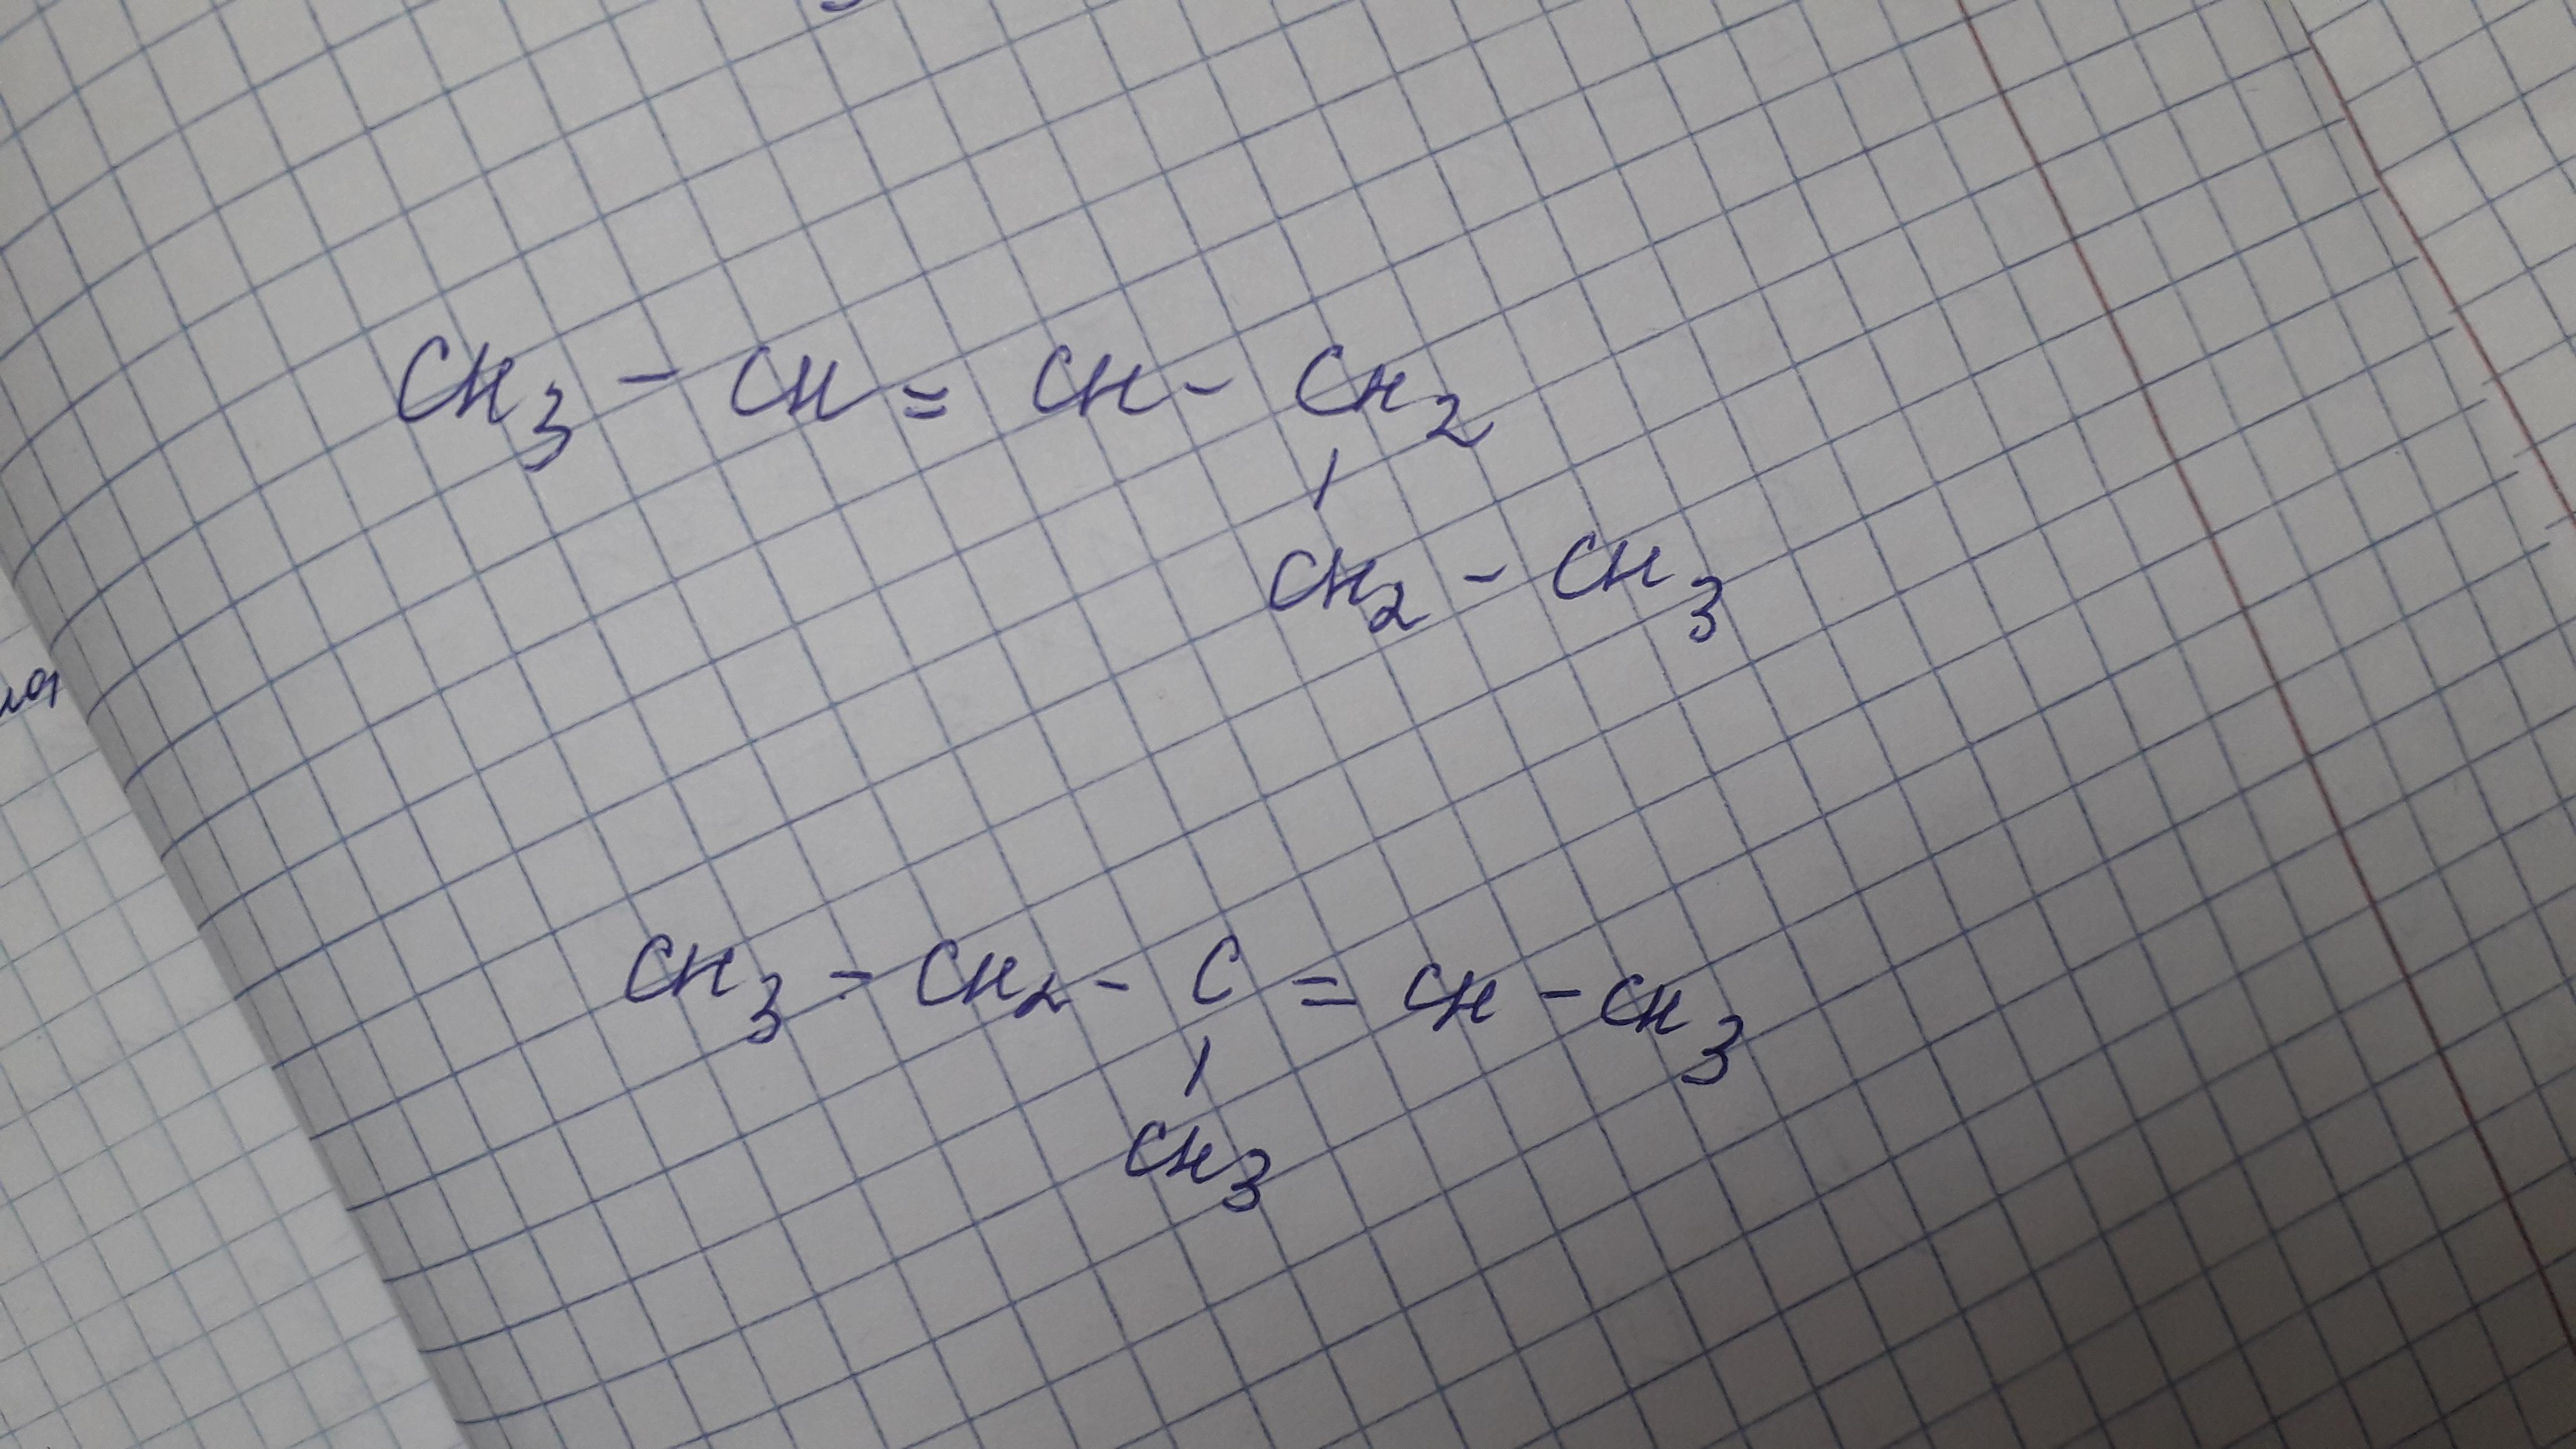 CH3 - CH = CH - CH2
|
CH2 - CH3
CH3 - CH2 - C = CH - CH3
|
CH3